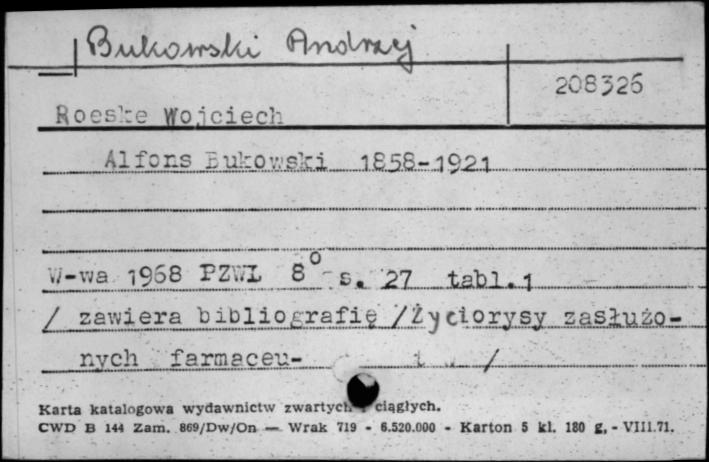 Bukowski Andrzej
208326
Roeske Wojciech
Alfons Bukowski 1858-1921
W-wa 1968 PZWL 8° s. 27 tabl.1
/ zawiera bibliografię /Życiorysy zasłużo-
nych farmaceu- /
Karta katalogowa wydawnictw zwartych i ciągłych.
CWD B 144 Zam. 869/Dw/On — Wrak 719 - 6.520.000 - Karton 5 kl. 180 g. - VIII.71.